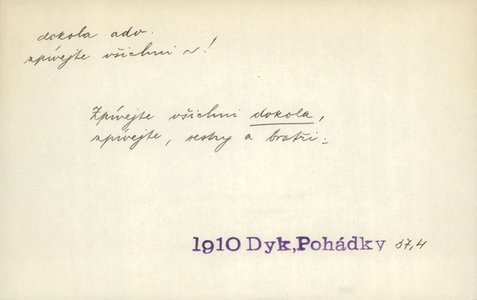 dokola adv.
zpívejte všichni ~!
Zpívejte všichni dokola,
zpívejte, sestry a bratři.
1910 Dyk, Pohádky 37,4